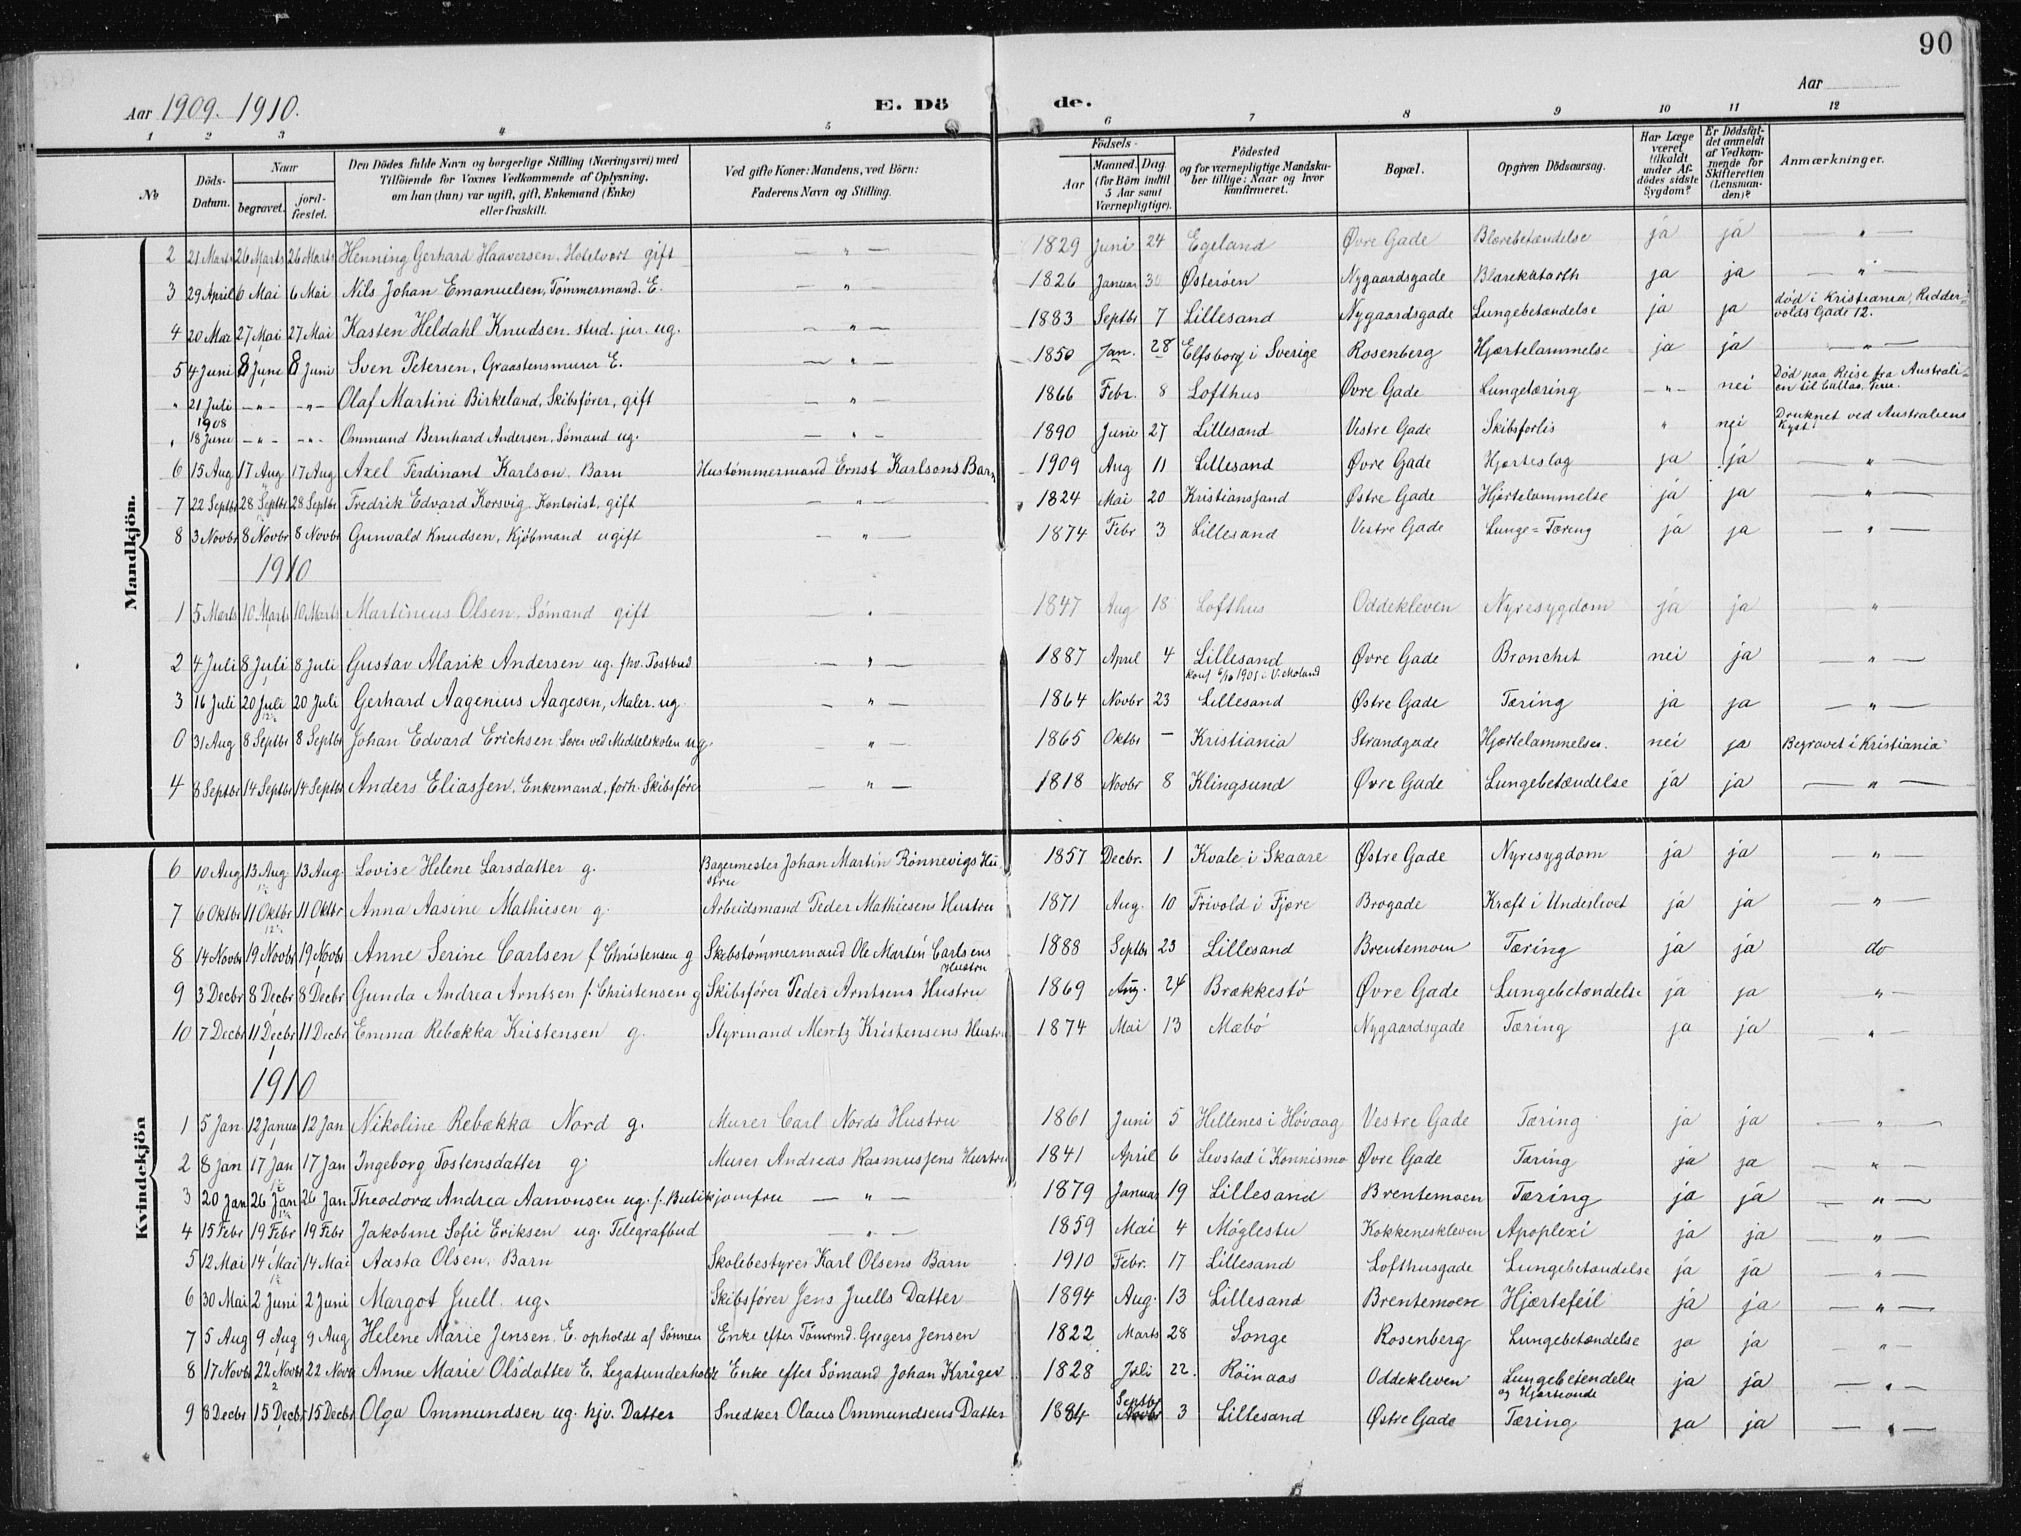 90
Aar 1909. 1910.
E. Döde.
Aar
1 2 3 4 5 6 7 8 9 10 11 12
№
Döds-Datum.
Naar
begravet.
jord-fæstet.
Den Dödes fulde Navn og borgerlige Stilling (Næringsvei) med
Tilföiende for Voxnes Vedkommende af Oplysning,
om han (hun) var ugift, gift, Enkemand (Enke)
eller fraskilt.
Ved gifte Koner: Mandens, ved Börn:
Faderens Navn og Stilling.
Födsels-
Aar
Maaned. Dag.
(for Börn indtil
5 Aar samt
Værnepligtige).
Födested
og for værnepligtige Mandska-
ber tillige: Naar og hvor
konfirmeret.
Bopæl.
Opgiven Dödsaarsag.
Har Læge
været
tilkaldt
under Af-
dödes sidste
Sygdom?
Er Dödsfal-
det anmeldt
af Vedkom-
mende for
Skifteretten
(Lensman-
den)?
Anmærkninger.
Mandkjön.
2 21 Marts 26 Marts 26 Marts Henning Gerhard Haaversen, Hotelvært gift — " — 1829 Juni 24 Egeland Øvre Gade Blærebetændelse ja ja — " —
3 29 April 6 Mai 6 Mai Nils Johan Emanuelsen, Tømmermand. E. — " — 1826 Januar 30 Østerøen Nygaardsgade Blærekatarrh ja ja — " —
4 20 Mai 27 Mai 27 Mai Kasten Heldahl Knudsen. stud. jur. ug. — " — 1883 Septbr 7 Lillesand Nygaardsgade Lungebetændelse ja ja død i Kristiania, Ridder-
volds Gade 12.
5 4 Juni 8 June 8 Juni Sven Petersen, Graastensmurer E. — " — 1850 Jan. 28 Elfsborg i Sverige Rosenberg Hjærtelammelse ja ja — " —
" 21 Juli — " — — " — Olaf Martini Birkeland, Skibsfører, gift — " — 1866 Febr. 8 Lofthus Øvre Gade Lungetæring — " — nei Død paa Reise fra Australi-
en til Callao, Peru.
1908
" 18 Juni — " — — " — Ommund Bernhard Andersen, Sømand ug. — " — 1890 Juni 27 Lillesand Vestre Gade Skibsforlis " nei Druknet ved Australiens
Kyst.
6 15 Aug 17 Aug 17 Aug Axel Ferdinant Karlson, Barn Hustømmermand Ernst Karlsons Barn 1909 Aug 11 Lillesand Øvre Gade Hjerteslag ja ja — " —
7 22 Septbr 28 Septbr 28 Septbr Fredrik Edvard Korsvig, Kontorist, gift — " — 1824 Mai 20 Kristianssand Østre Gade Hjertelammelse ja ja — " —
8 3 Novbr 8 Novbr 8 Novbr Gunvald Knudsen, Kjøbmand ugift — " — 1874 Febr 3 Lillesand Vestre Gade Lunge=Tæring ja ja — " —
1910
1 5 Marts 10 Marts 10 Marts Martinius Olsen, Sømand gift " 1847 Aug 18 Lofthus Oddekleven Nyresygdom ja ja "
2 4 Juli 8 Juli 8 Juli Gustav Alarik Andersen ug. fhv. Postbud — " — 1887 April 4 Lillesand Øvre Gade Bronchit nei ja — " —
konf 6/10 1901 i V. Moland
3 16 Juli 20 Juli 20 Juli Gerhard Aagenius Aagesen, Maler. ug. — " — 1864 Novbr 23 Lillesand Østre Gade Tæring ja ja — " —
0 31 Aug 8 Septbr 8 Septbr Johan Edvard Erichsen Lærer ved Middelskolen ug — " — 1865 Oktbr — Kristiania Strandgade Hjertelammelse. nei ja Begravet i Kristiania
4 8 Septbr 14 Septbr 14 Septbr Anders Eliassen, Enkemand, forh. Skibsfører — " — 1818 Novbr 8 Klingsund Øvre Gade Lungebetændelse ja ja — " —
Kvindekjön
6 10 Aug 13 Aug 13 Aug. Lovise Helene Larsdatter g. Bagermester Johan Martin Rønnevigs Hu
stru 1857 Decbr. 1 Kvale i Skaare Østre Gade Nyresygdom ja ja — " —
7 6 Oktbr 11 Oktbr 11 Oktbr Anna Aasine Mathiesen g. Arbeidsmand Peder Mathiesens Hustru 1871 Aug. 10 Frivold i Fjære Brogade Kræft i Underlivet ja ja — " —
8 14 Novbr 19 Novbr 19 Novbr Anne Serine Carlsen f. Christensen g Skibstømmermand Ole Martin Carlsens
Hustru 1888 Septbr 23 Lillesand Brentemoen Tæring ja ja do
9 3 Decbr 8 Decbr 8 Decbr Gunda Andrea Arntsen f. Christensen g Skibsfører Peder Arntsens Hustru 1869 Aug. 24 Brækkestø Øvre Gade Lungebetændelse ja ja — " —
10 7 Decbr 11 Decbr 11 Decbr Emma Rebækka Kristensen g. Styrmand Mentz Kristensens Hustru 1874 Mai 13 Mæbø Nygaardsgade Tæring ja ja — " —
1910
1 5 Jan 12 Januar 12 Jan Nikoline Rebækka Nord g. Murer Carl Nords Hustru 1861 Juni 5 Hellenes i Høvaag Vestre Gade Tæring ja ja — " —
2 8 Jan 17 Jan 17 Jan Ingeborg Tostensdatter g. Murer Andreas Rasmussens Hustru 1841 April 6 Levstad i Konnismo Øvre Gade Tæring ja ja — " —
3 20 Jan 26 Jan 26 Jan Theodora Andrea Aanonsen ug. f. Butikjomfru — " — 1879 Januar 19 Lillesand Brentemoen Tæring ja ja — " —
4 15 Febr 19 Febr 19 Febr Jakobine Sofie Eriksen ug. Telegrafbud — " — 1859 Mai 4 Møglestu Kokkeneskleven Apoplexi ja ja — " —
5 12 Mai 14 Mai 14 Mai Aasta Olsen, Barn Skolebestyrer Karl Olsens Barn 1910 Febr. 17 Lillesand Lofthusgade Lungebetændelse ja ja — " —
6 30 Mai 2 Juni 2 Juni Margot Juell. ug. Skibsfører Jens Juells Datter 1894 Aug. 13 Lillesand Brentemoen Hjærtefeil ja ja — " —
7 5 Aug 9 Aug 9 Aug Helene Marie Jensen, E. opholdt af Sønnen Enke efter Tømrmd. Gregers Jensen 1822 Marts 28 Songe Rosenberg Lungebetændelse ja ja — " —
8 17 Novbr 22 Novbr 22 Novbr Anne Marie Olsdatter E. Legatunderholdt Enke efter Sømand Johan Krüger 1828 Juli 22. Røinaas Oddekleven Lungebetændelse
og Hjerteonde ja ja — " —
9 8 Decbr 15 Decbr 15 Decbr Olga Ommundsen ug. hjv. Datter Snedker Olaus Ommundsens Datter 1884 Septbr Novbr 3 Lillesand Østre Gade Tæring ja ja — " —